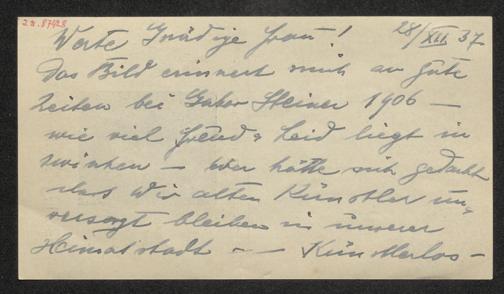 Werte Gnädige Frau! 28/XII. 37
das Bild erinnert mich an gute
Zeiten bei Gabor Steiner 1906 —
wie viel Freud u Leid liegt in
zwischen — wer hätte sich gedacht
dass wir alten Künstler un-
versorgt bleiben in unserer
Heimatstadt — — Künstlerlos —